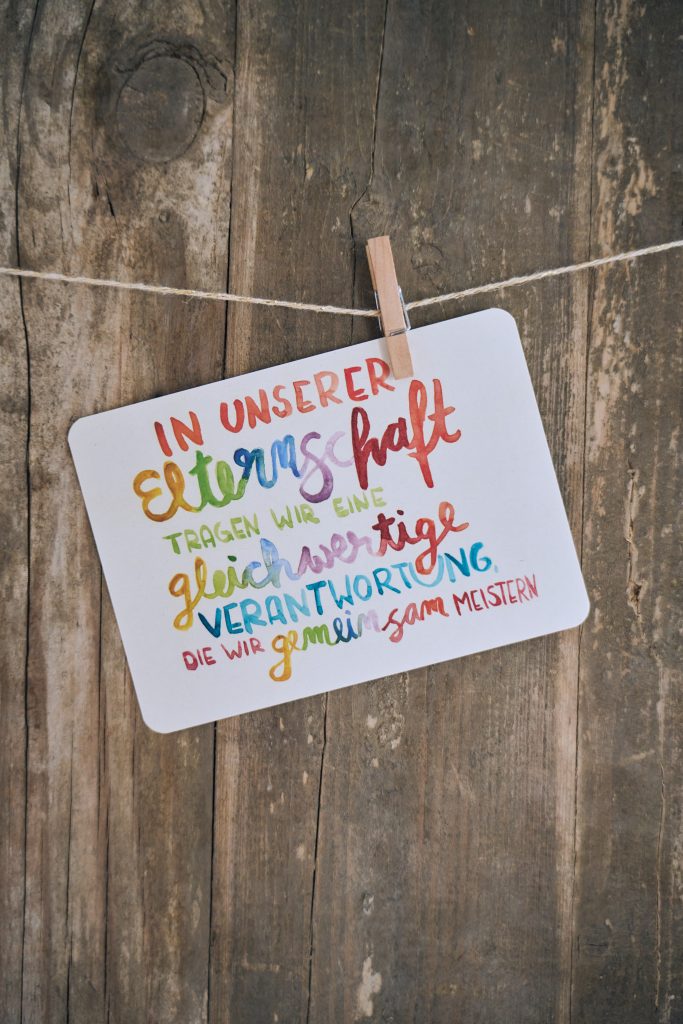 IN UNSERER
Elternschaft
TRAGEN WIR EINE
gleichwertige
VERANTWORTUNG,
DIE WIR gemeinsam MEISTERN